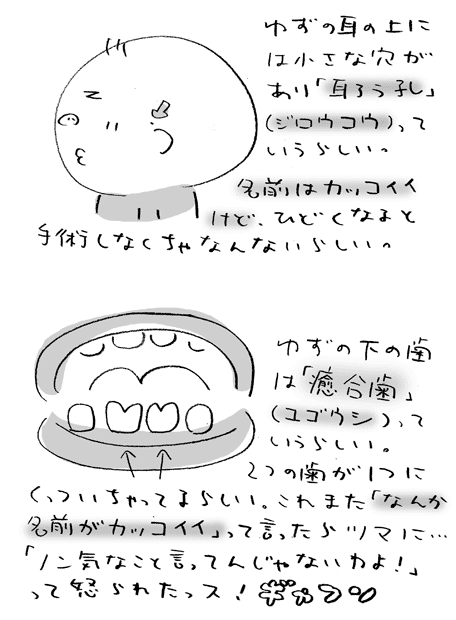 ゆずの耳の上に
は小さな穴が
あり「耳ろう孔」
(ジロウコウ)って
いうらしい。
名前はカッコイイ
けど、ひどくなると
手術しなくちゃなんないらしい。
ゆずの下の歯
は「癒合歯」
(ユゴウシ)って
いうらしい。
2つの歯が1つに
くっついちゃってるらしい。これまた「なんか
名前がカッコイイ」って言ったらツマに…
「ノン気なこと言ってんじゃないわよ!」
って怒られたっス!ギャフン